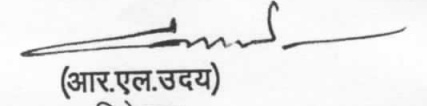 (आर.एल.उदय)